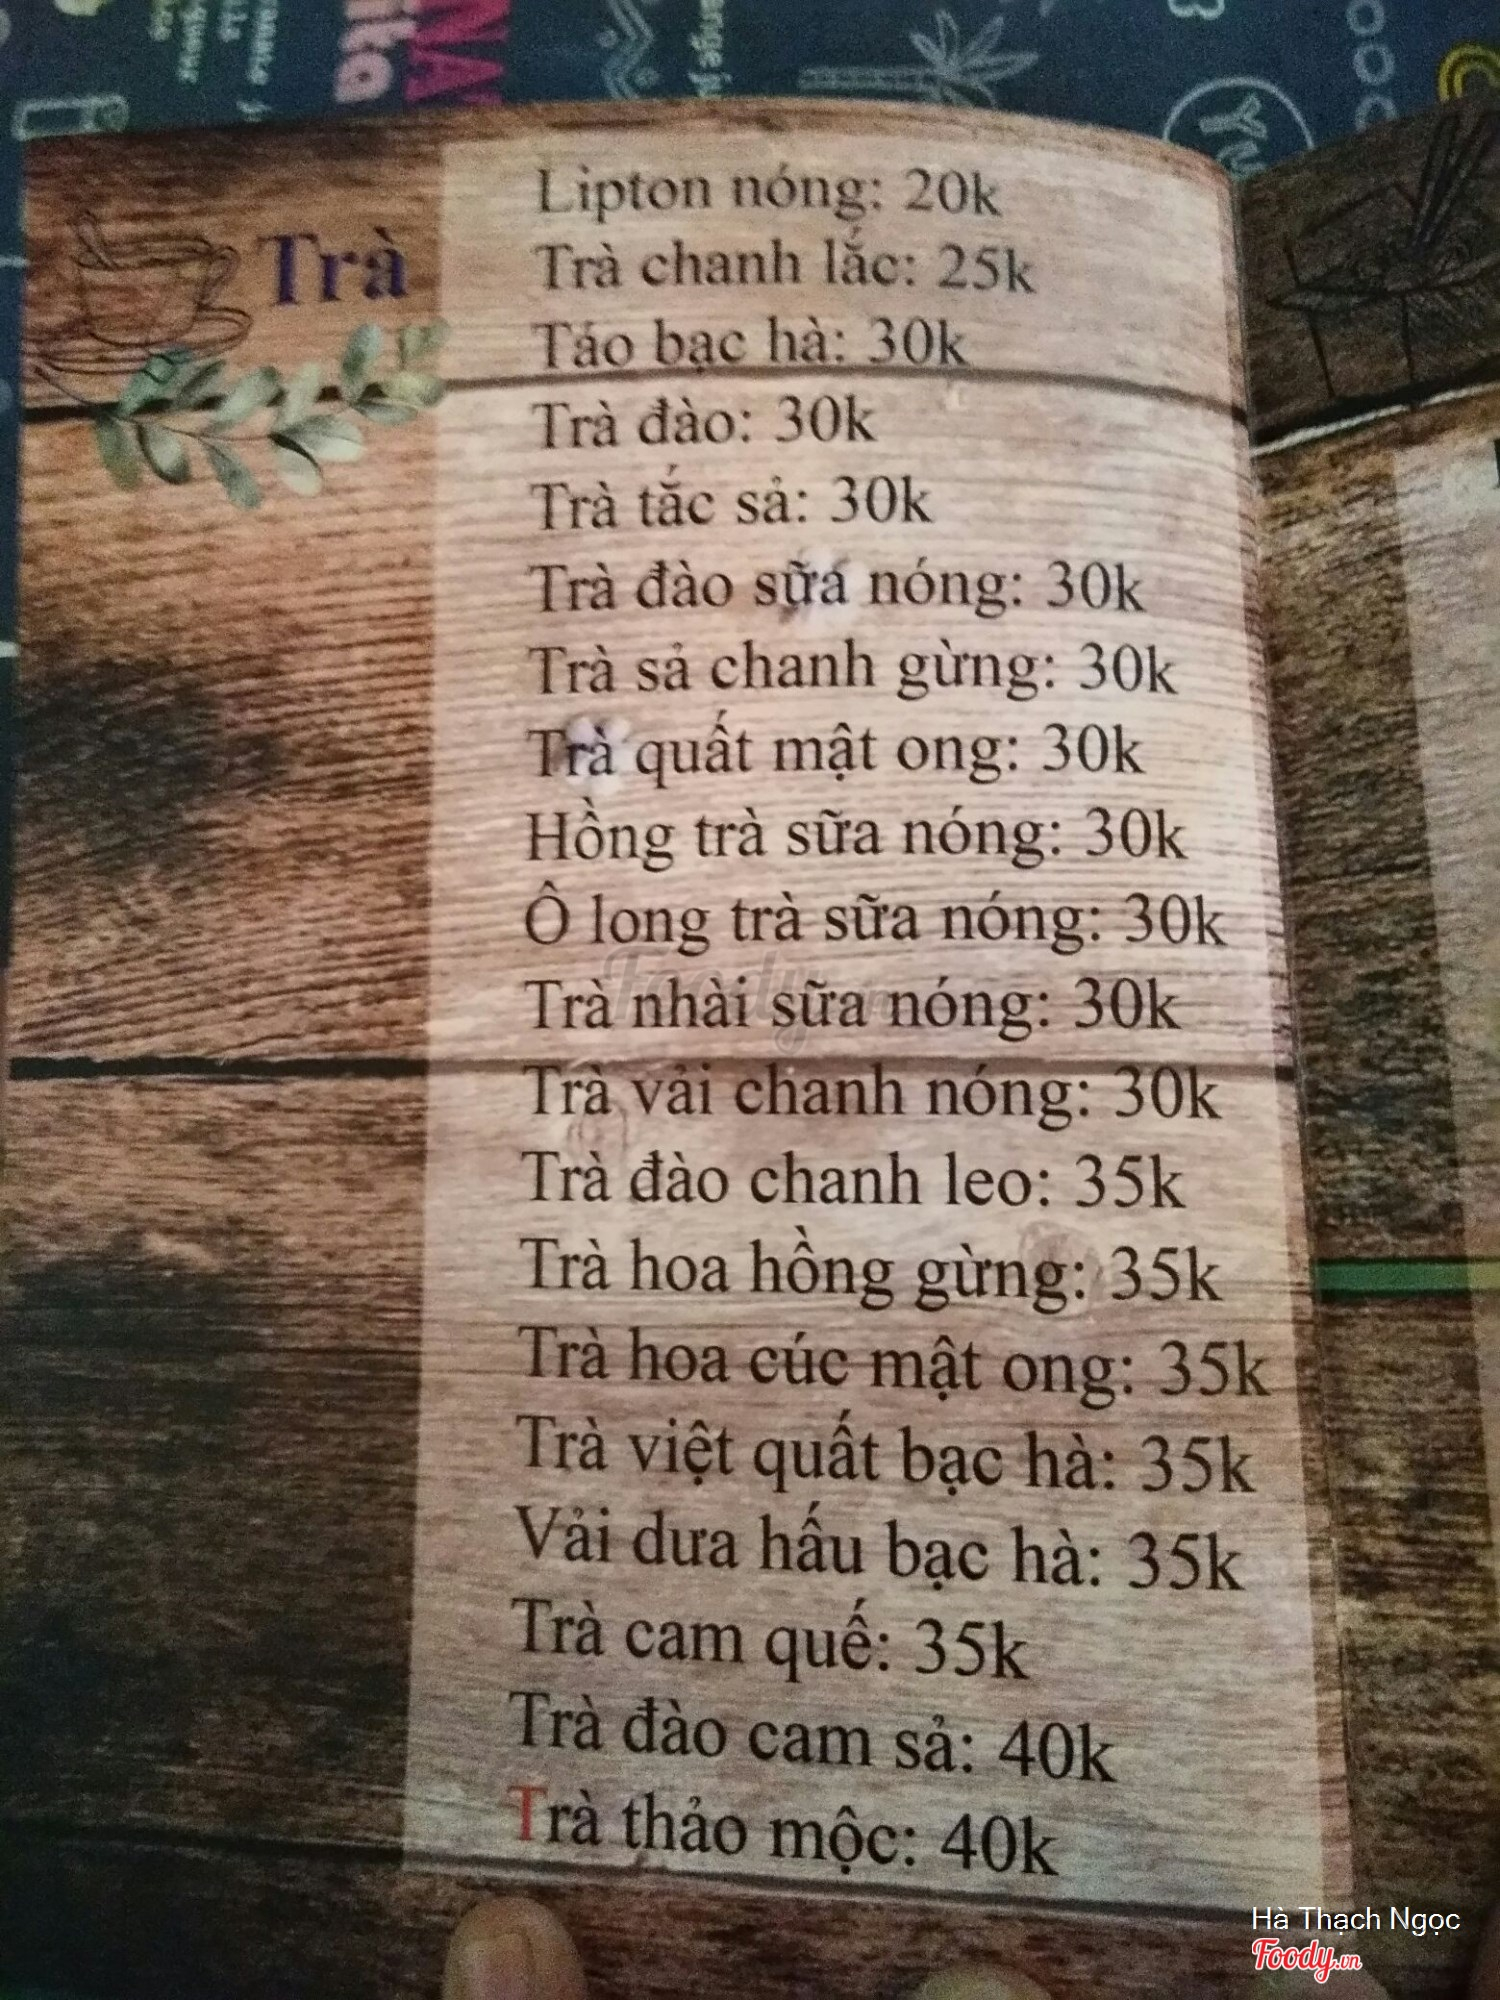 Trà
Lipton nóng: 20k
Trà chanh lắc: 25k
Táo bạc hà: 30k
Trà đào: 30k
Trà tắc sả: 30k
Trà đào sữa nóng: 30k
Trà sả chanh gừng: 30k
Trà quất mật ong: 30k
Hồng trà sữa nóng: 30k
Ô long trà sữa nóng: 30k
Trà nhài sữa nóng: 30k
Trà vải chanh nóng: 30k
Trà đào chanh leo: 35k
Trà hoa hồng gừng: 35k
Trà hoa cúc mật ong: 35k
Trà việt quất bạc hà: 35k
Vải dưa hấu bạc hà: 35k
Trà cam quế: 35k
Trà đào cam sả: 40k
Trà thảo mộc: 40k
Foody.vn
Hà Thạch Ngọc
Foody.vn